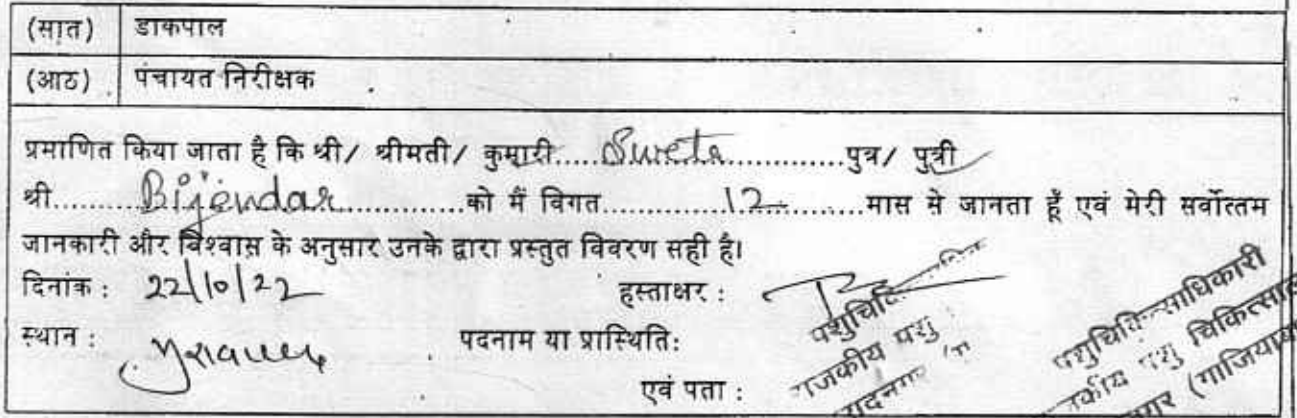 (सात) डाकपाल
(आठ) पंचायत निरीक्षक
प्रमाणित किया जाता है कि श्री/ श्रीमती/ कुमारी..... Sweta ..............पुत्र/ पुत्री
श्री.......... Bijendar ..............को मैं विगत.............. 12 ..........मास से जानता हूँ एवं मेरी सर्वोत्तम
जानकारी और विश्वास के अनुसार उनके द्वारा प्रस्तुत विवरण सही है।
दिनांक : 22/10/22 हस्ताक्षर :
स्थान : पदनाम या प्रास्थिति:
एवं पता :
राजकीय पशु
पशुचिकित्साधिकारी
राजकीय पशु चिकित्साल